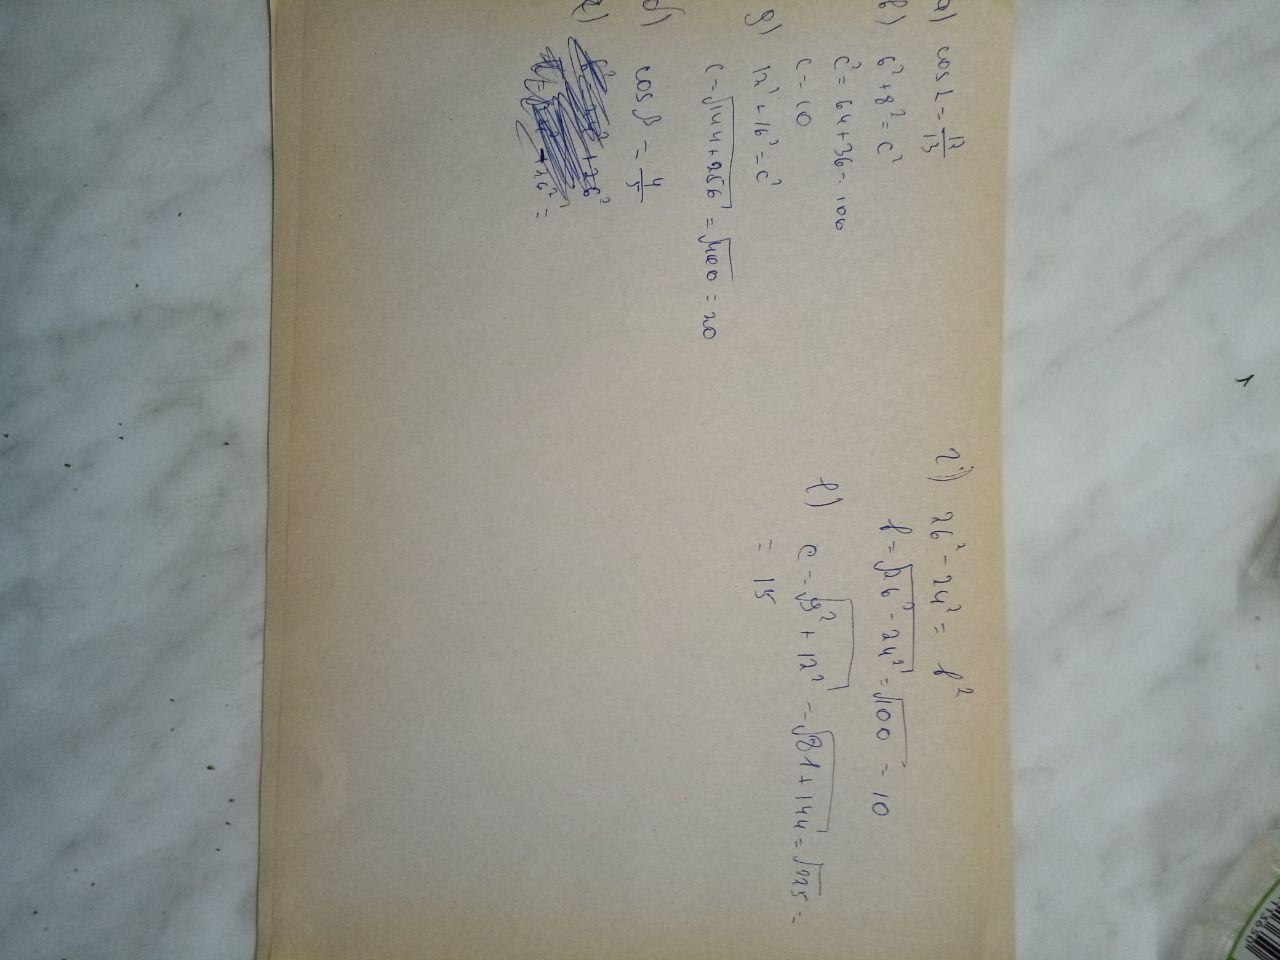 а) cos α = 12/13
в) 6² + 8² = c²
c² = 64 + 36 = 100
c = 10
д) 12² + 16² = c²
c = √144 + 256 = √400 = 20
б) cos β = 4/5
г)
+ 26²
+ 26² =
г) 26² - 24² = b²
b = √26² - 24² = √100 = 10
е) c = √9² + 12² = √81 + 144 = √225 =
= 15